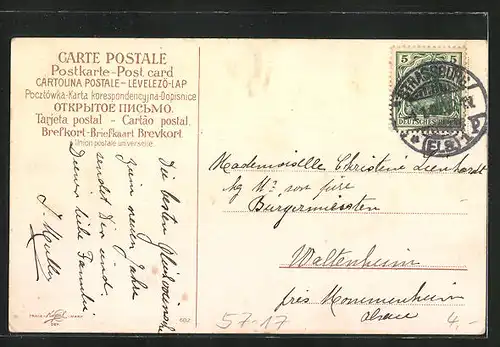 CARTE POSTALE
Postkarte-Post card
CARTOLINA POSTALE-LEVELEZÖ-LAP
Pocztówka-Karta korespondencyjna-Dopisnice
ОТКРЫТОЕ ПИСЬМО.
Tarjeta postal - Cartão postal.
Brefkort-Briefkaart Brevkort.
Union postale universelle.
Die besten Glückwünsche
zum neuen Jahre
sendet Dir und
Deiner liebe Familie
J. Muller
5 5
DEUTSCHES REICH
STRASSBURG
(ELS.)
Mademoiselle Christine Lienhardt
Mr son père
Burgermeister
Waltenheim
près Mommenheim
Alsace
TRADE MARK
607
57-17
4.-